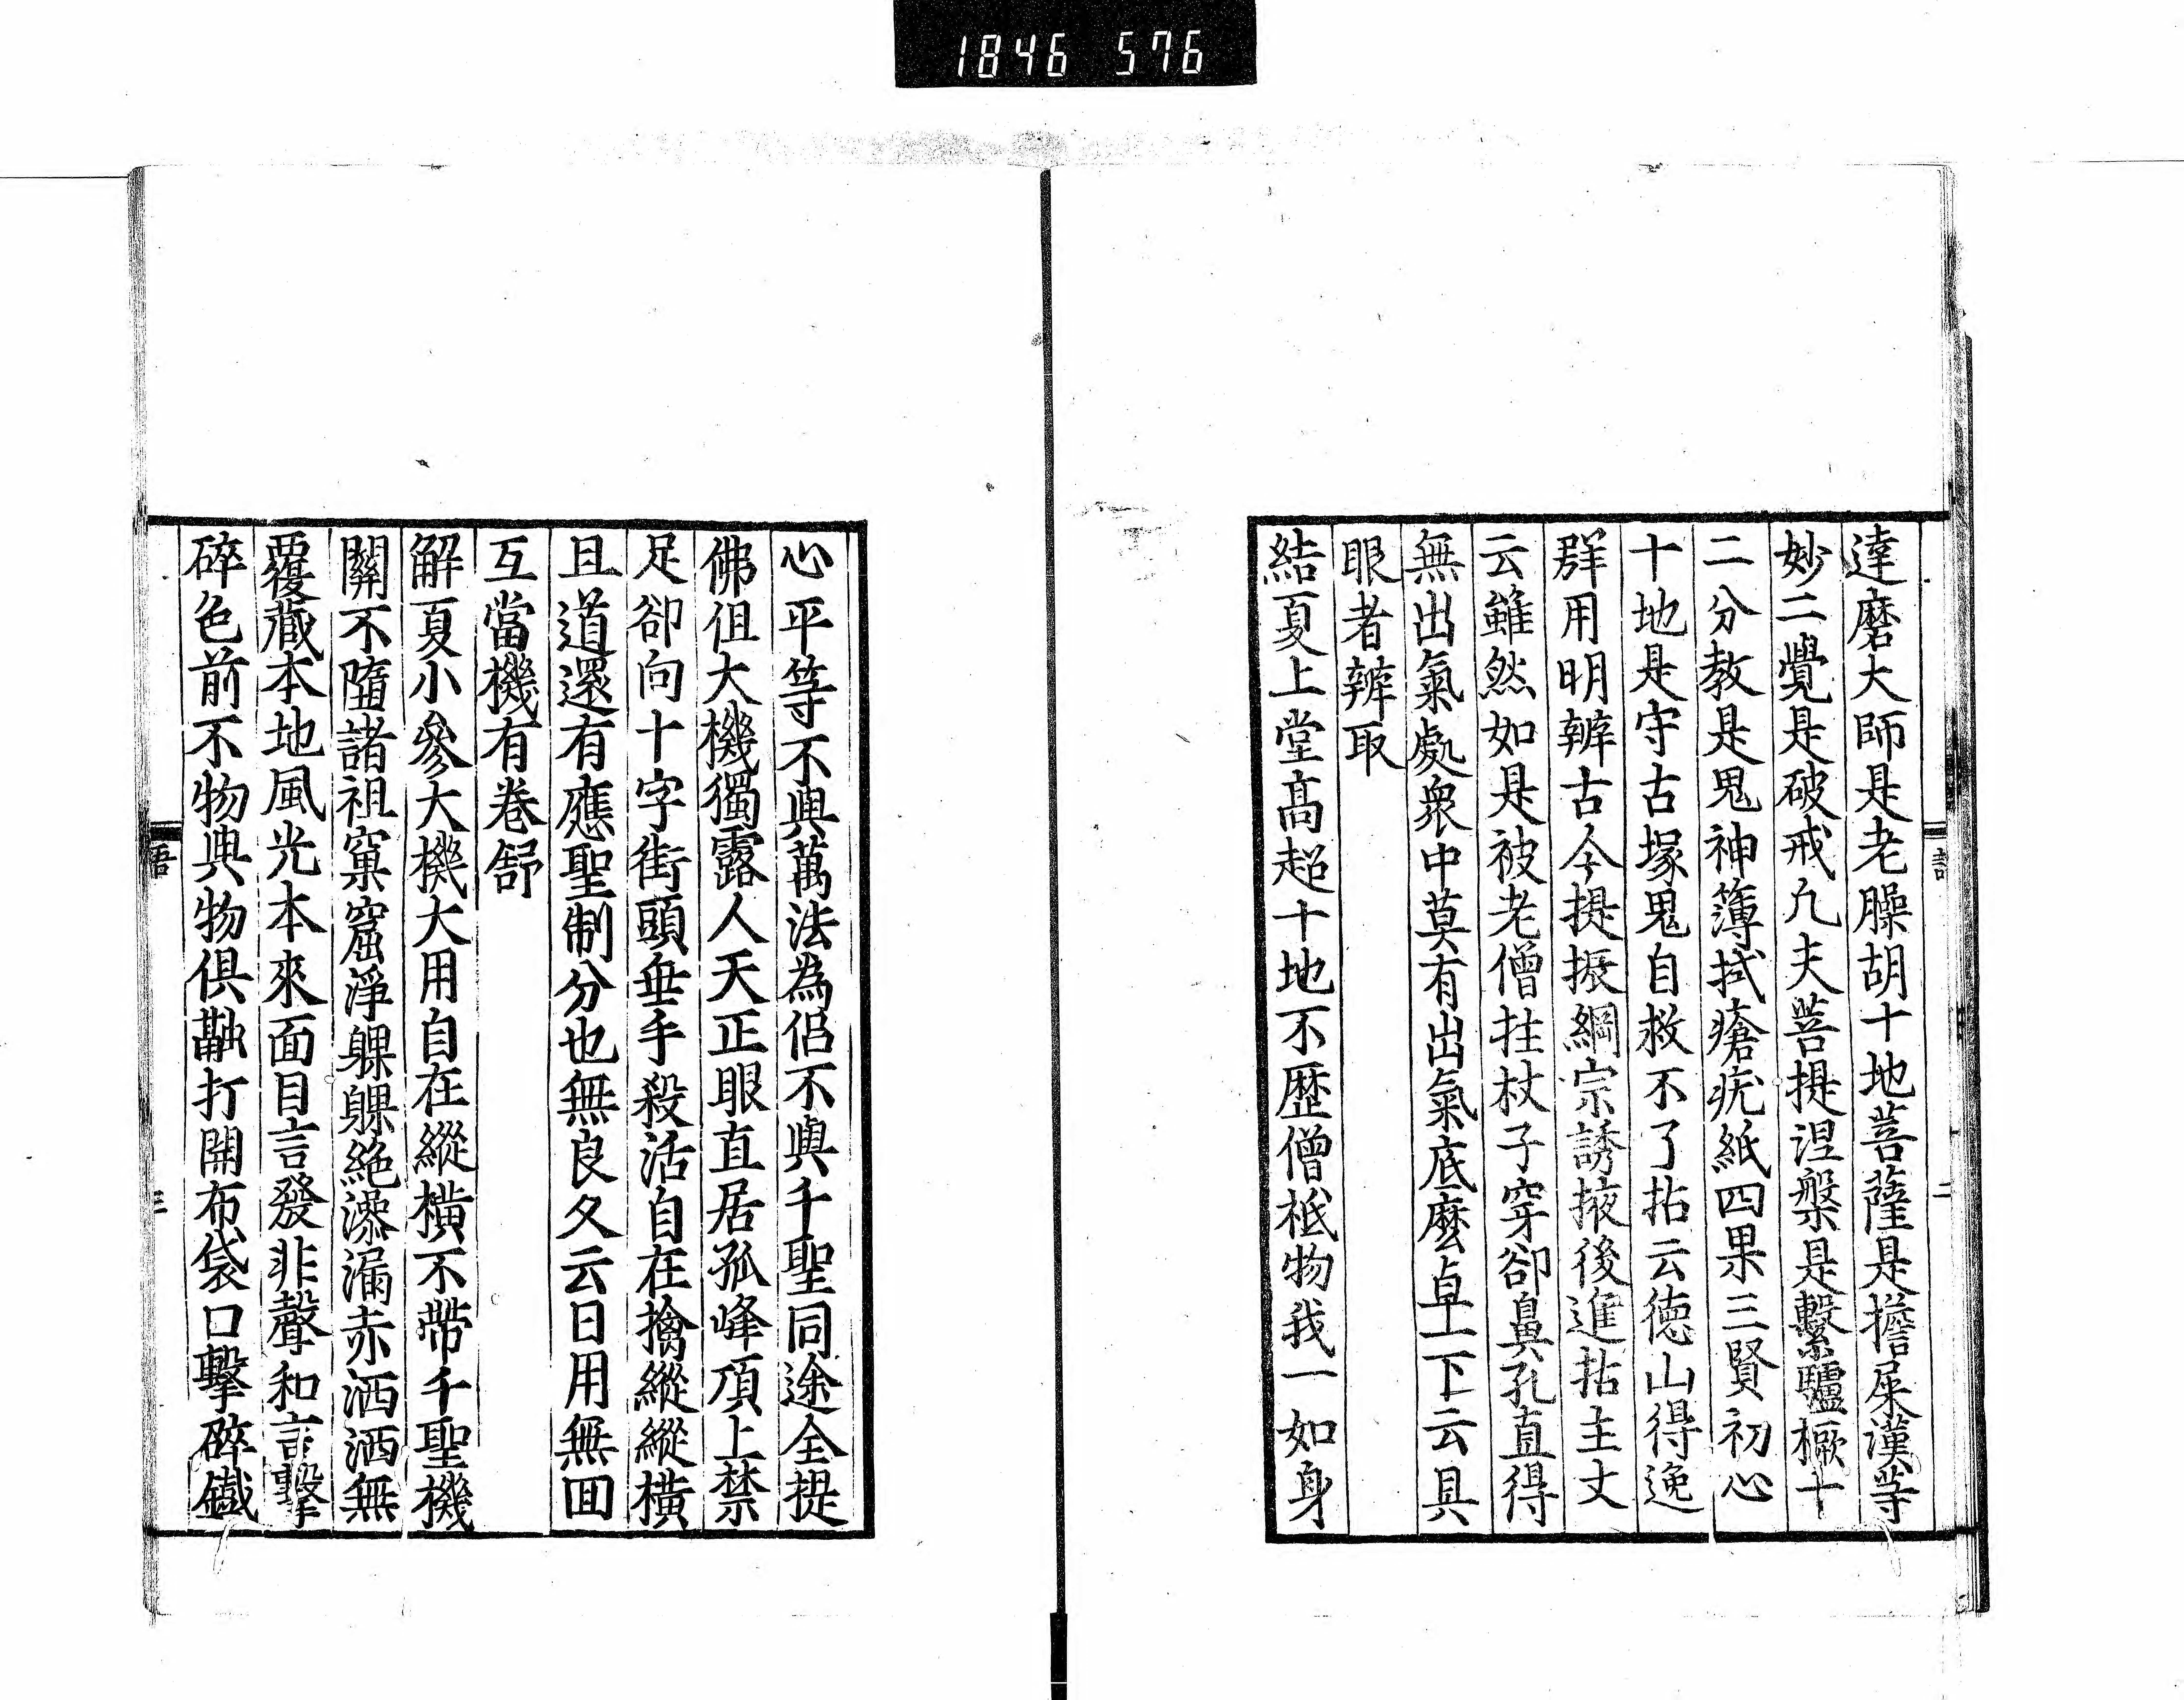 1846 576
達磨大師是老臊胡十地菩薩是擔屎漢等
妙二覺是破戒凢夫菩提涅槃是繫驢橛十
二分教是鬼神簿拭瘡疣紙四果三賢初心
十地是守古塚鬼自救不了拈云德山得逸
群用明辨古今提振綱宗誘掖後進拈主丈
云雖然如是被老僧拄杖子穿卻鼻孔直得
無出氣處衆中莫有出氣底麽卓一下云具
眼者辨取
結夏上堂髙超十地不歷僧祇物我一如身
心平等不與萬法為侣不與千聖同途全提
佛祖大機獨露人天正眼直居孤峰頂上禁
足卻向十字街頭垂手殺活自在擒縱縱橫
且道還有應聖制分也無良久云日用無回
互當機有卷舒
解夏小參大機大用自在縱橫不帶千聖機
關不墮諸祖窠窟淨躶躶絶滲漏赤洒洒無
覆藏本地風光本來面目言發非聲和言擊
碎色前不物與物俱融打開布袋口擊碎鐵
語